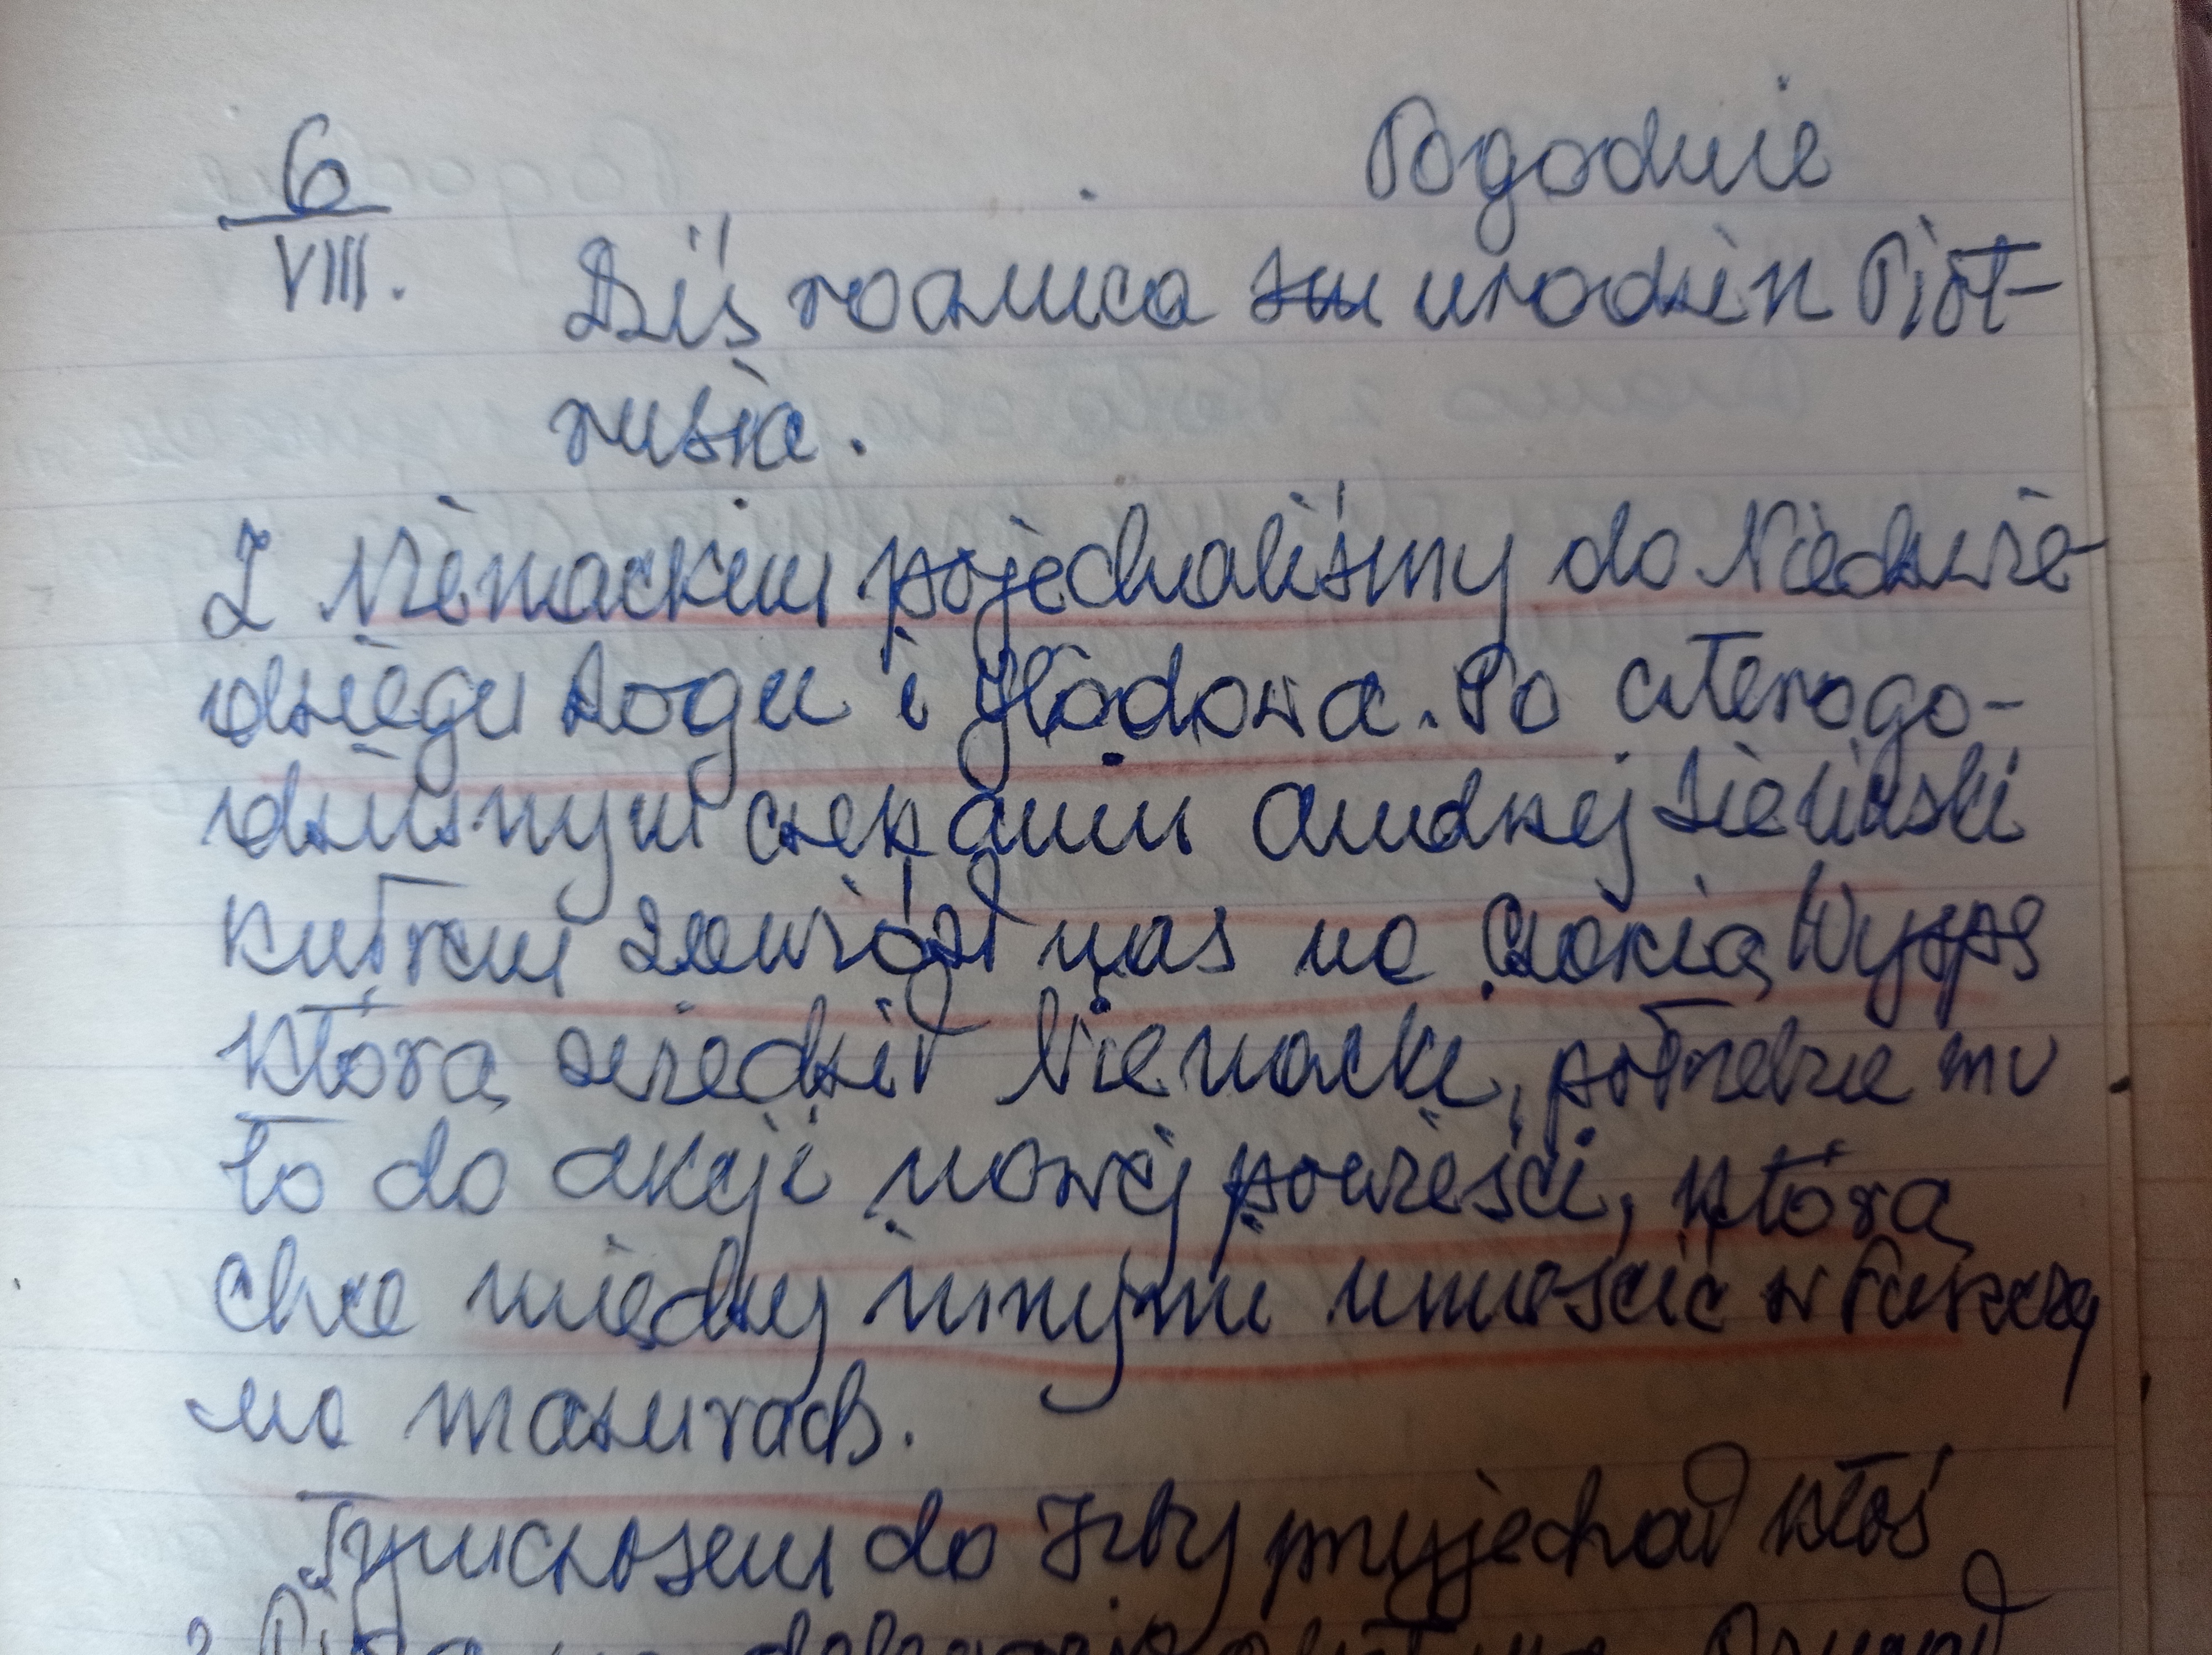 6
VIII.
Pogodnie
Dziś rocznica urodzin Piot-
rusia.
Z Nienackim pojechaliśmy do Niedźwie-
dziego Rogu i Głodowa. Po czterogo-
dzinnym czekaniu Andrzej
kutrem zawiózł nas na Czarcią Wyspę
którą zwiedził Nienacki, potrzebne mu
to do akcji nowej powieści, którą
chce między innymi umieścić w Puszczy
na Mazurach.
Tymczasem do Izby przyjechał ktoś